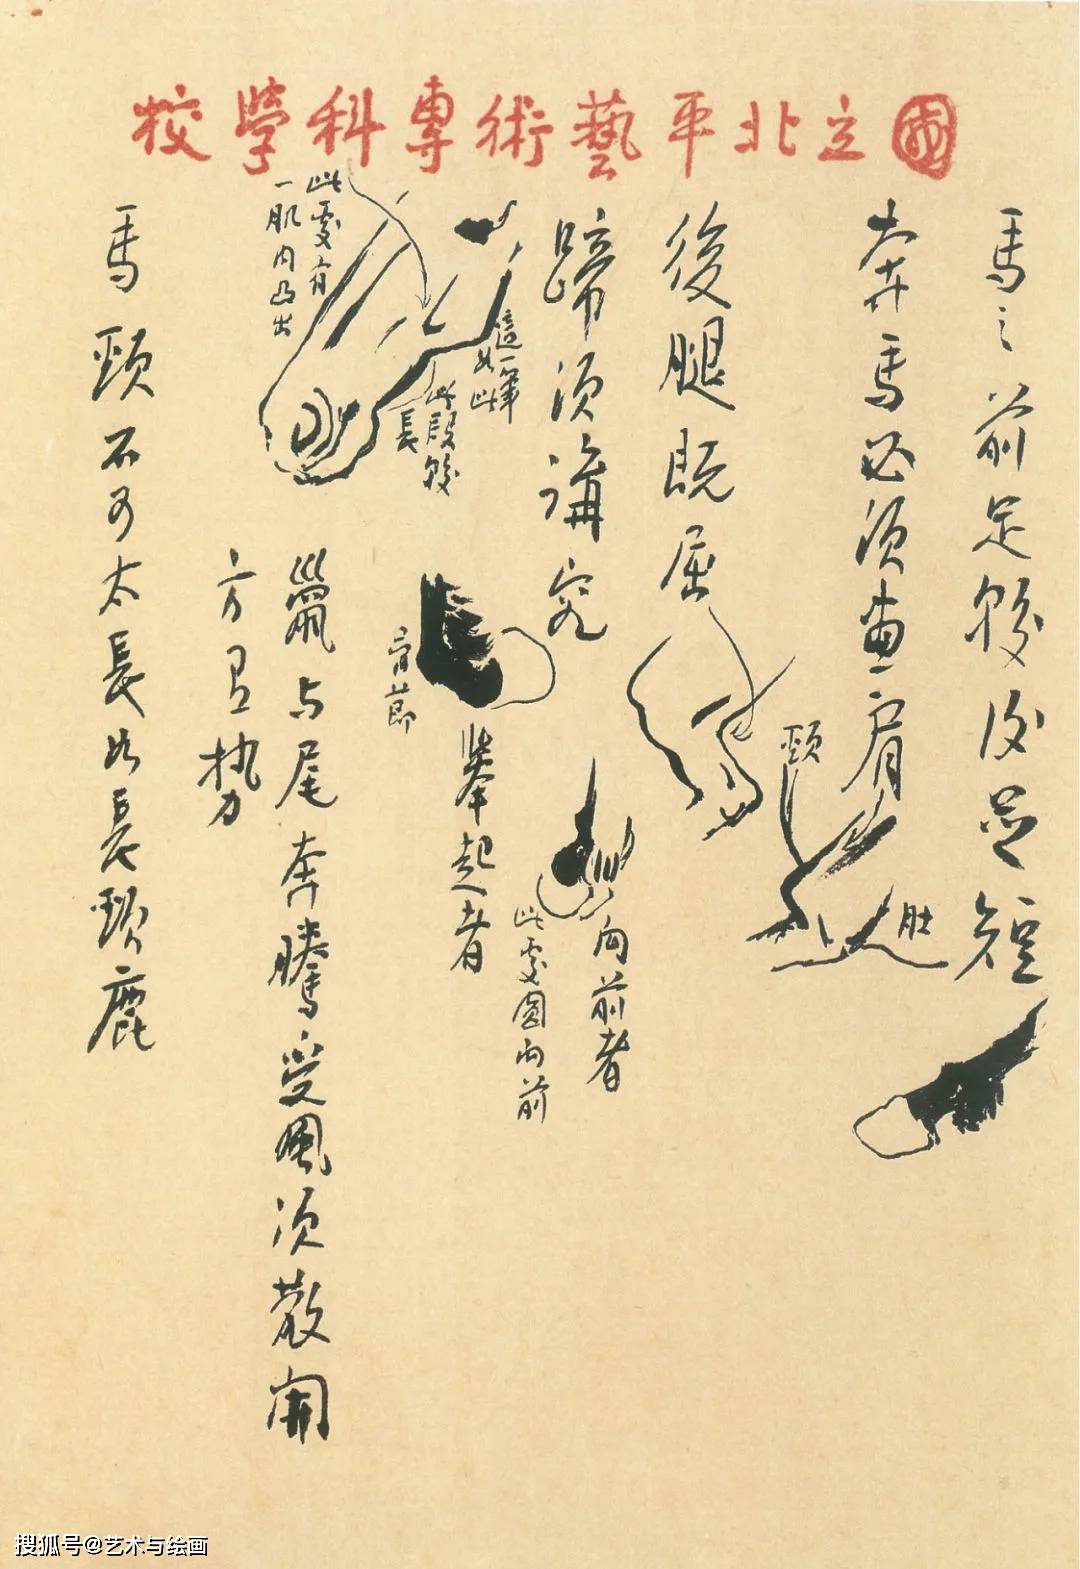 國立北平藝術專科學校
馬之前足較後足短
奔馬必須畫肩
頸
肚
後腿既屈
蹄須講究
向前者
此處圓向前
舉起者
骨節
這一筆
如此
此段較
長
此處有
一肌肉凸出
鬣与尾奔騰受風須散開
方有勢
馬頸不可太長如長頸鹿
搜狐号@艺术与绘画